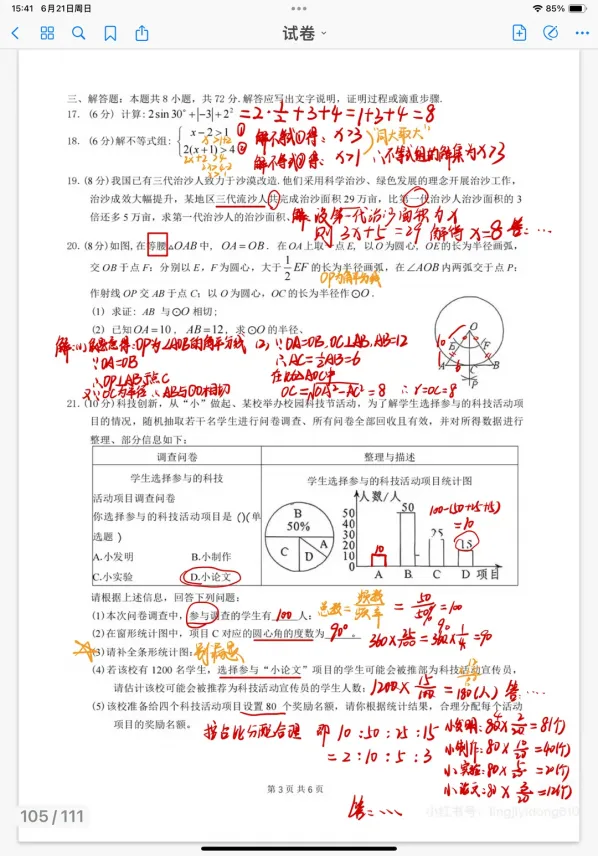 15:41 6月21日周日
85%
试卷
三、解答题:本题共8小题,共72分.解答应写出文字说明,证明过程或演重步骤.
17.(6分)计算:2sin30°+|-3|+2² =2·1/2+3+4=1+3+4=8
18.(6分)解不等式组:{x-2>1 ① 解不等式①得:x>3 "同大取大"
x>1+2
2(x+1)>4 ② 解不等式②得:x>1 ∴不等式组的解集为x>3
2x+2>4
19.(8分)我国已有三代治沙人致力于沙漠改造.他们采用科学治沙、绿色发展的理念开展治沙工作,
治沙成效大幅提升,某地区三代流沙人共完成治沙面积29万亩,比第一代治沙人治沙面积的3
倍还多5万亩,求第一代治沙人的治沙面积、
解:设第一代治沙面积为x
则 3x+5=29 解得x=8 答:…
20.(8分)如图,在等腰△OAB中,OA=OB.在OA上取一点E,以O为圆心,OE的长为半径画弧,
交OB于点F;分别以E,F为圆心,大于1/2EF的长为半径画弧,在∠AOB内两弧交于点P;
OP为角平分线
作射线OP交AB于点C;以O为圆心,OC的长为半径作⊙O.
(1)求证:AB与⊙O相切;
(2)已知OA=10,AB=12,求⊙O的半径、
解:(1)由题意得:OP为∠AOB的角平分线
∵OA=OB
∴OP⊥AB于点C
又∵OC为半径 ∴AB与⊙O相切
(2)∵OA=OB,OC⊥AB,AB=12
∴AC=1/2AB=6
在Rt△AOC中
OC=√OA²-AC²=8 ∴r=OC=8
O
10
E F
A 6 C B
P
21.(10分)科技创新,从“小”做起、某校举办校园科技节活动,为了解学生选择参与的科技活动项
目的情况,随机抽取若干名学生进行问卷调查、所有问卷全部回收且有效,并对所得数据进行
整理、部分信息如下:
调查问卷 整理与描述
学生选择参与的科技
活动项目调查问卷
你选择参与的科技活动项目是()(单
选题)
A.小发明 B.小制作
C.小实验 D.小论文
学生选择参与的科技活动项目统计图
B
50%
A
C D
人数/人
50
40
30
20
10
0
10 50 25 15
A B C D 项目
100-(50+25+15)
=10
请根据上述信息,回答下列问题:
(1)本次问卷调查中,参与调查的学生有 100 人;
总数=频数/频率 =50/50%=100
(2)在窗形统计图中,项目C对应的圆心角的度数为 90°。
360×25/100=360×1/4=90
(3)请补全条形统计图;别漏题
(4)若该校有1200名学生,选择参与“小论文”项目的学生可能会被推部为科技活动宣传员,
请估计该校可能会被推荐为科技活动宣传员的学生人数;
1200×15/100=180(人) 答:…
(5)该校准备给四个科技活动项目设置80个奖励名额,请你根据统计结果,合理分配每个活动
项目的奖励名额。
按占比分配合理 即10:50:25:15
=2:10:5:3
小发明:80×2/20=8(个)
小制作:80×10/20=40(个)
小实验:80×5/20=20(个)
小论文:80×3/20=12(个)
答:…
第3页共6页
105/111